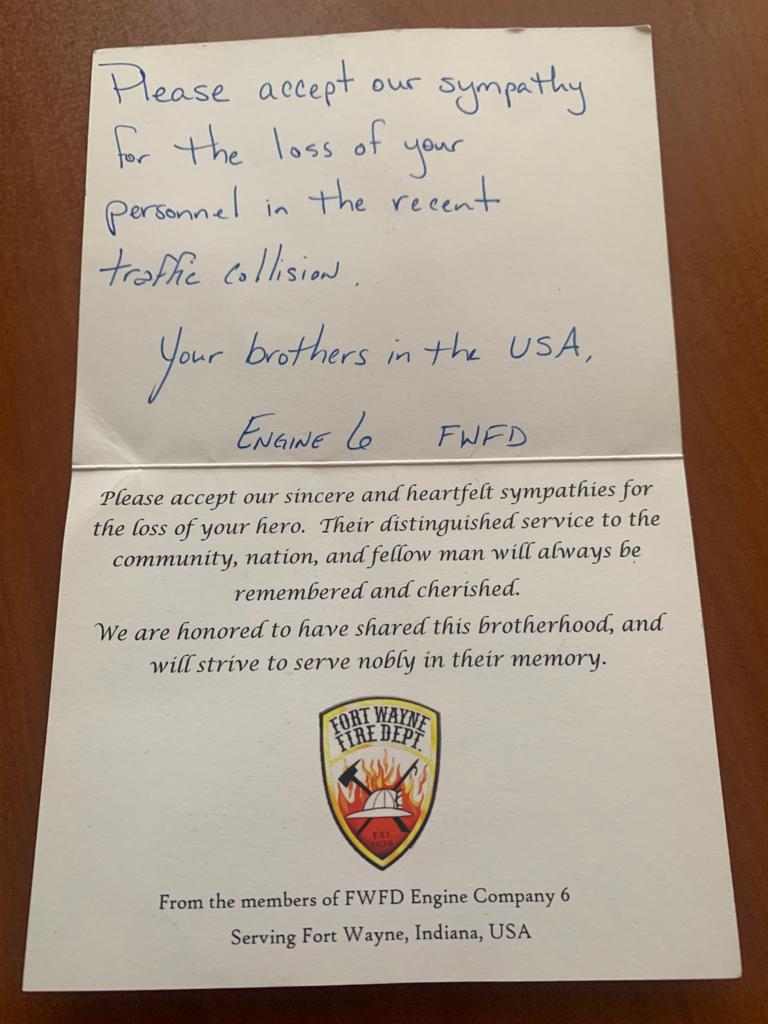 Please accept our sympathy
for the loss of your
personnel in the recent
traffic collision.
Your brothers in the USA,
ENGINE 6 FWFD
Please accept our sincere and heartfelt sympathies for
the loss of your hero. Their distinguished service to the
community, nation, and fellow man will always be
remembered and cherished.
We are honored to have shared this brotherhood, and
will strive to serve nobly in their memory.
FORT WAYNE
FIRE DEPT.
EST.
1839
From the members of FWFD Engine Company 6
Serving Fort Wayne, Indiana, USA